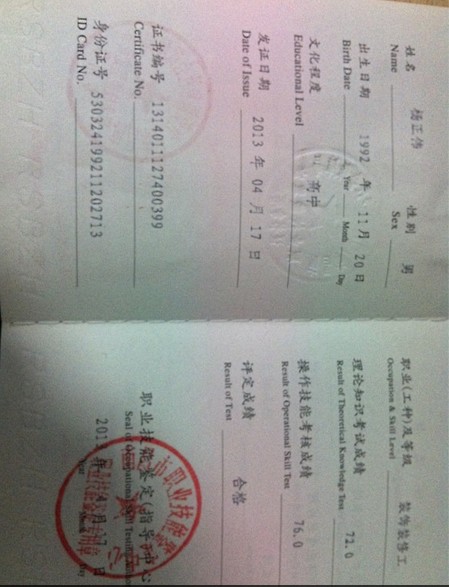 姓名 杨正伟 性别 男
Name Sex
出生日期 1992 年 11 月 20 日
Birth Date Year Month Day
文化程度 高中
Educational Level
发证日期 2013 年 04 月 17 日
Date of Issue
证书编号 1314011127400399
Certificate No.
身份证号 530324199211202713
ID Card No.
职业(工种)及等级 装饰装修工
Occupation & Skill Level
理论知识考试成绩 72.0
Result of Theoretical Knowledge Test
操作技能考核成绩 76.0
Result of Operational Skill Test
评定成绩 合格
Result of Test
职业技能鉴定(指导)中心
Seal of Occupational Skill Testing
年 月 17 日